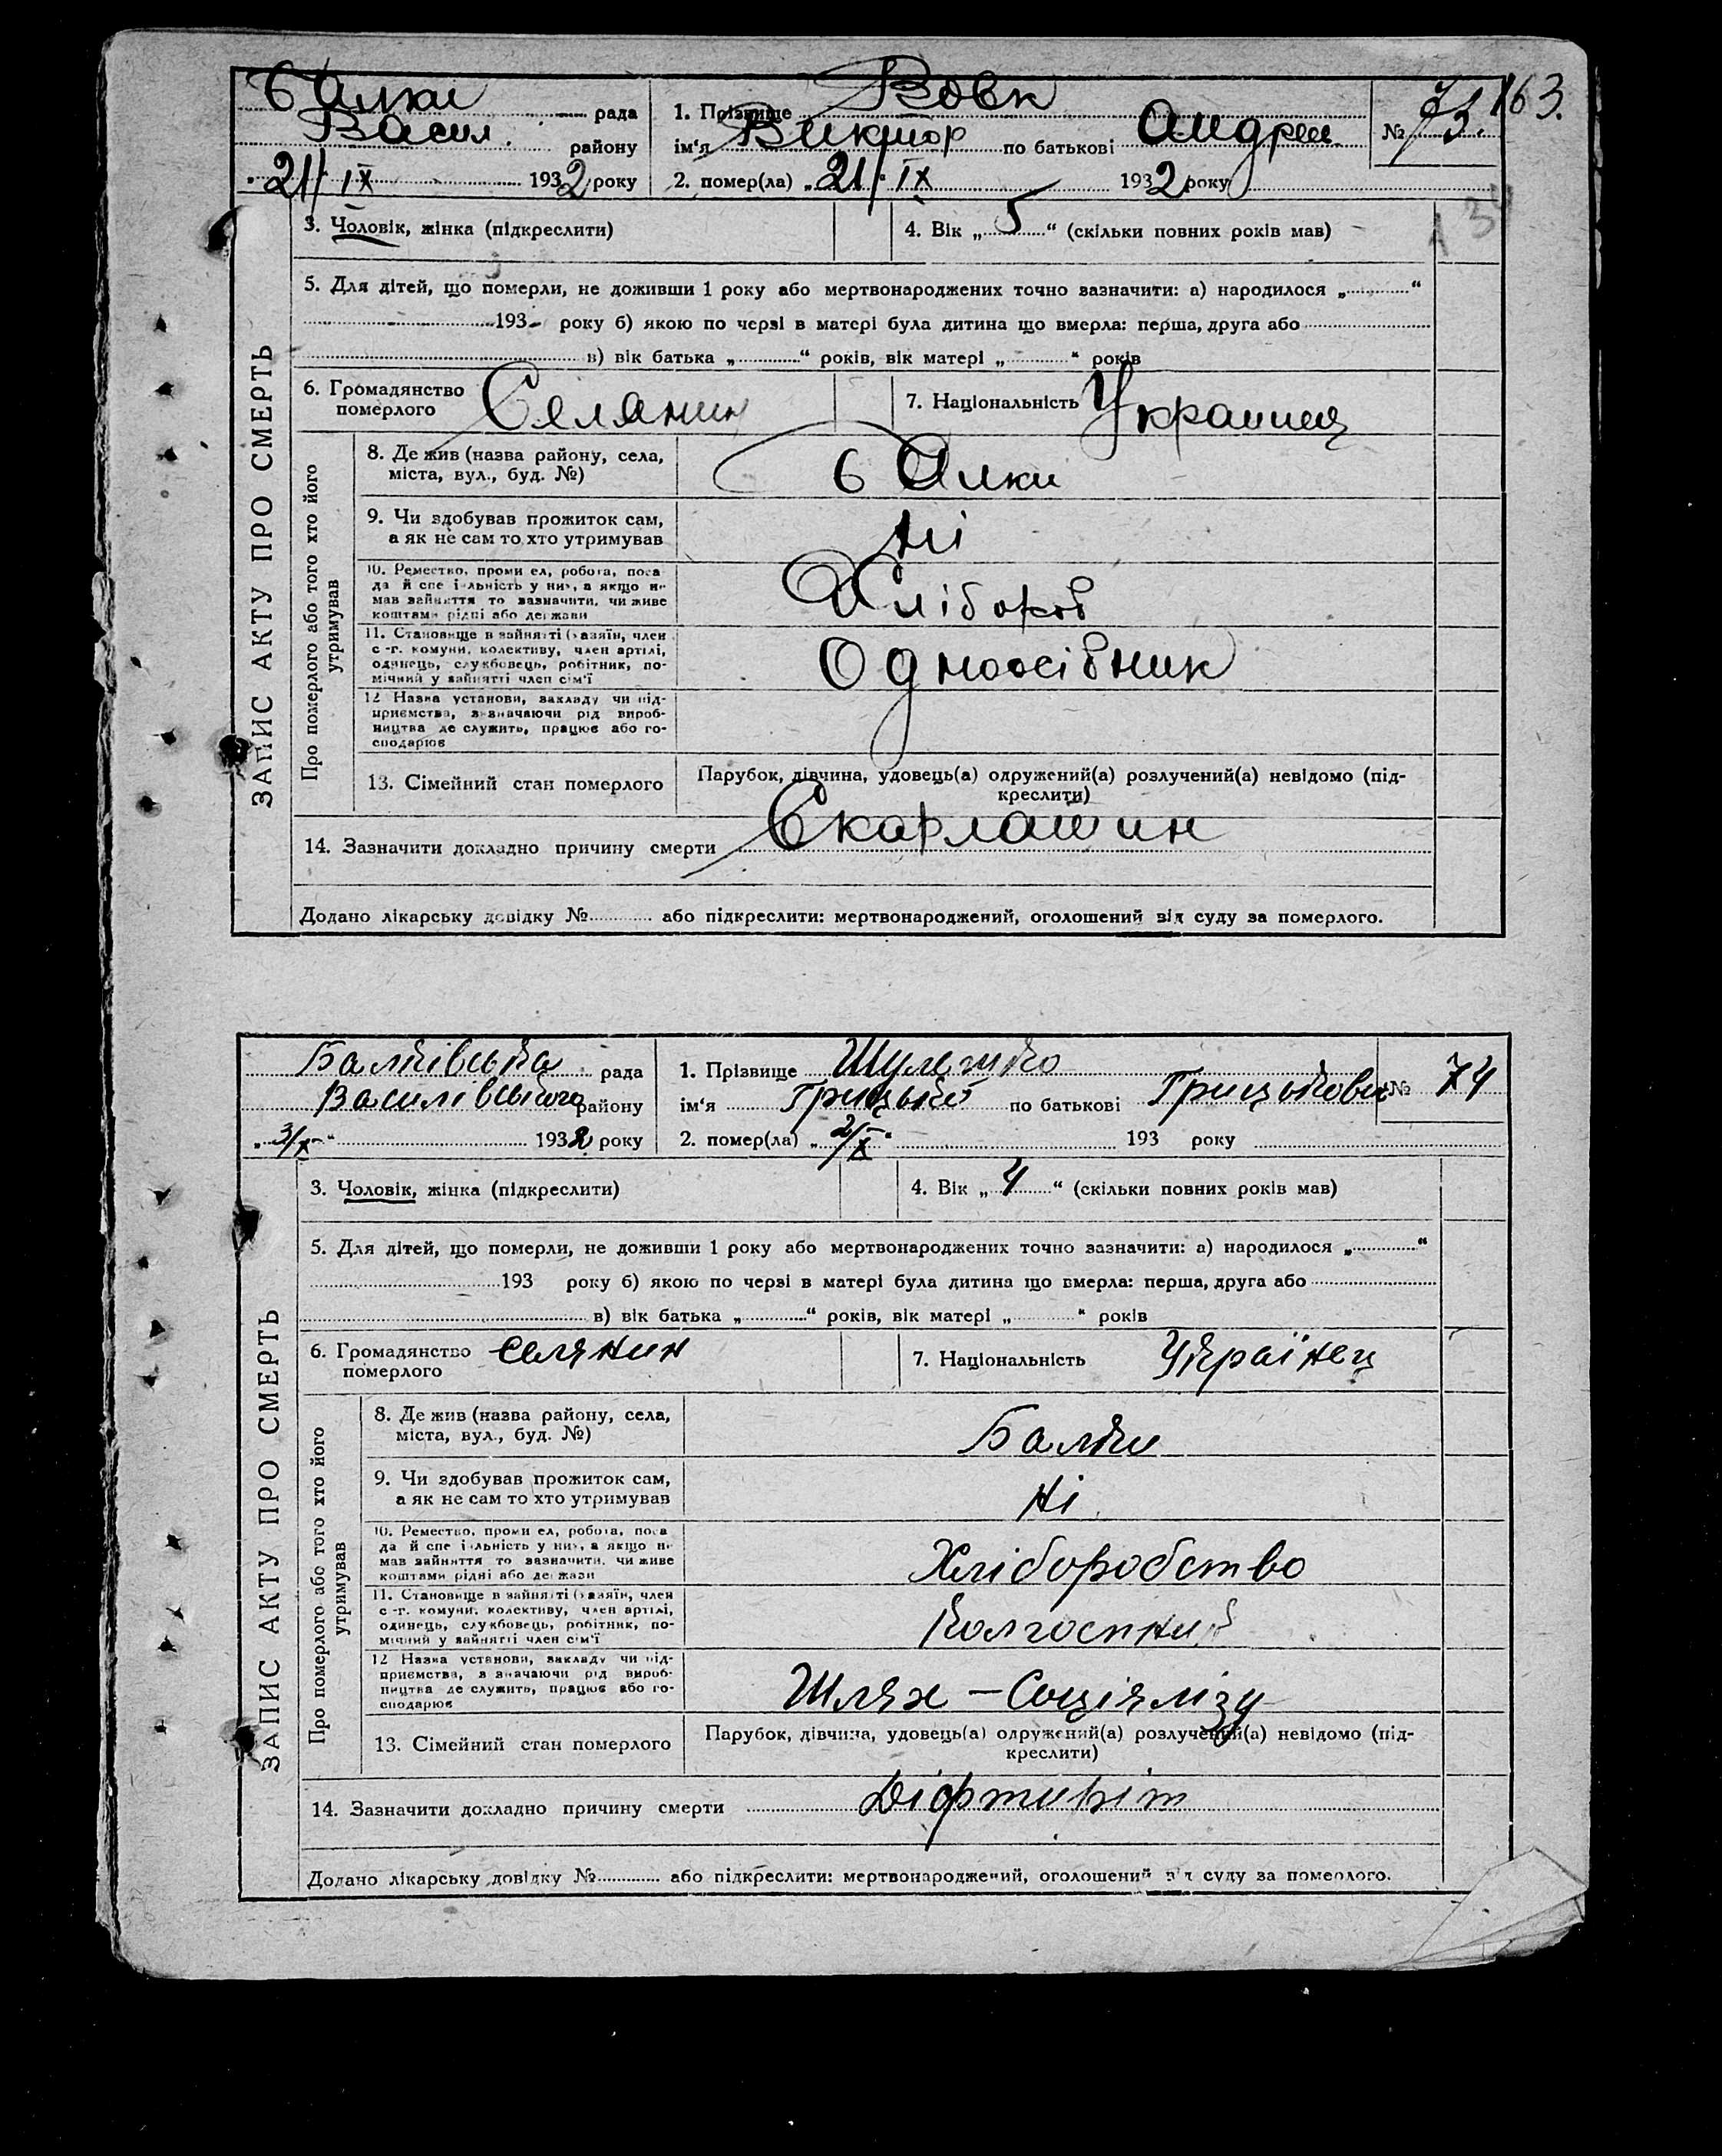 Балки рада
Васил. району
„21/ IX 1932 року
1. Прізвище Вовк
ім'я Виктор по батькові Андреи
2. помер(ла) „21/" IX 1932 року
№ 73.
163.
ЗАПИС АКТУ ПРО СМЕРТЬ
3. Чоловік, жінка (підкреслити)
4. Вік „5" (скільки повних років мав)
5. Для дітей, що померли, не доживши 1 року або мертвонароджених точно зазначити: а) народилося „ "
193 року б) якою по черзі в матері була дитина що вмерла: перша, друга або
в) вік батька „ " років, вік матері „ " років
6. Громадянство
померлого Селянин
7. Національність Украинец
Про померлого або того хто його
утримував
8. Де жив (назва району, села,
міста, вул., буд. №)
Балки
9. Чи здобував прожиток сам,
а як не сам то хто утримував
Ні
10. Ремество, проми ел, робота, поса
да й спе і льність у них, а якщо не
мав зайняття то зазначити, чи живе
коштами рідні або держави
Хлібороб
11. Становище в зайнятті (хазяїн, член
с-г. комуни, колективу, член артілі,
одинець, службовець, робітник, по-
мічний у зайнятті член сім'ї
Одноосібник
12 Назва установи, закладу чи під-
приємства, зазначаючи рід вироб-
ництва де служить, працює або го-
сподарює
13. Сімейний стан померлого
Парубок, дівчина, удовець(а) одружений(а) розлучений(а) невідомо (під-
креслити)
14. Зазначити докладно причину смерти Скарлатин
Додано лікарську довідку № або підкреслити: мертвонароджений, оголошений від суду за померлого.
Балківська рада
Василівського району
„3/X" 1932 року
1. Прізвище Шулешко
ім'я Грицько по батькові Грицькови
2. помер(ла) „2/X" 193 року
№ 74
ЗАПИС АКТУ ПРО СМЕРТЬ
3. Чоловік, жінка (підкреслити)
4. Вік „4" (скільки повних років мав)
5. Для дітей, що померли, не доживши 1 року або мертвонароджених точно зазначити: а) народилося „ "
193 року б) якою по черзі в матері була дитина що вмерла: перша, друга або
в) вік батька „ " років, вік матері „ " років
6. Громадянство
померлого селянин
7. Національність Українец
Про померлого або того хто його
утримував
8. Де жив (назва району, села,
міста, вул., буд. №)
Балки
9. Чи здобував прожиток сам,
а як не сам то хто утримував
Ні
10. Ремество, проми ел, робота, поса
да й спе і льність у них, а якщо не
мав зайняття то зазначити, чи живе
коштами рідні або держави
Хліборобство
11. Становище в зайнятті (хазяїн, член
с-г. комуни, колективу, член артілі,
одинець, службовець, робітник, по-
мічний у зайнятті член сім'ї
Колгоспник
12 Назва установи, закладу чи під-
приємства, зазначаючи рід вироб-
ництва де служить, працює або го-
сподарює
Шлях – Соціялізу
13. Сімейний стан померлого
Парубок, дівчина, удовець(а) одружений(а) розлучений(а) невідомо (під-
креслити)
14. Зазначити докладно причину смерти Діфтиріт
Додано лікарську довідку № або підкреслити: мертвонароджений, оголошений від суду за померлого.